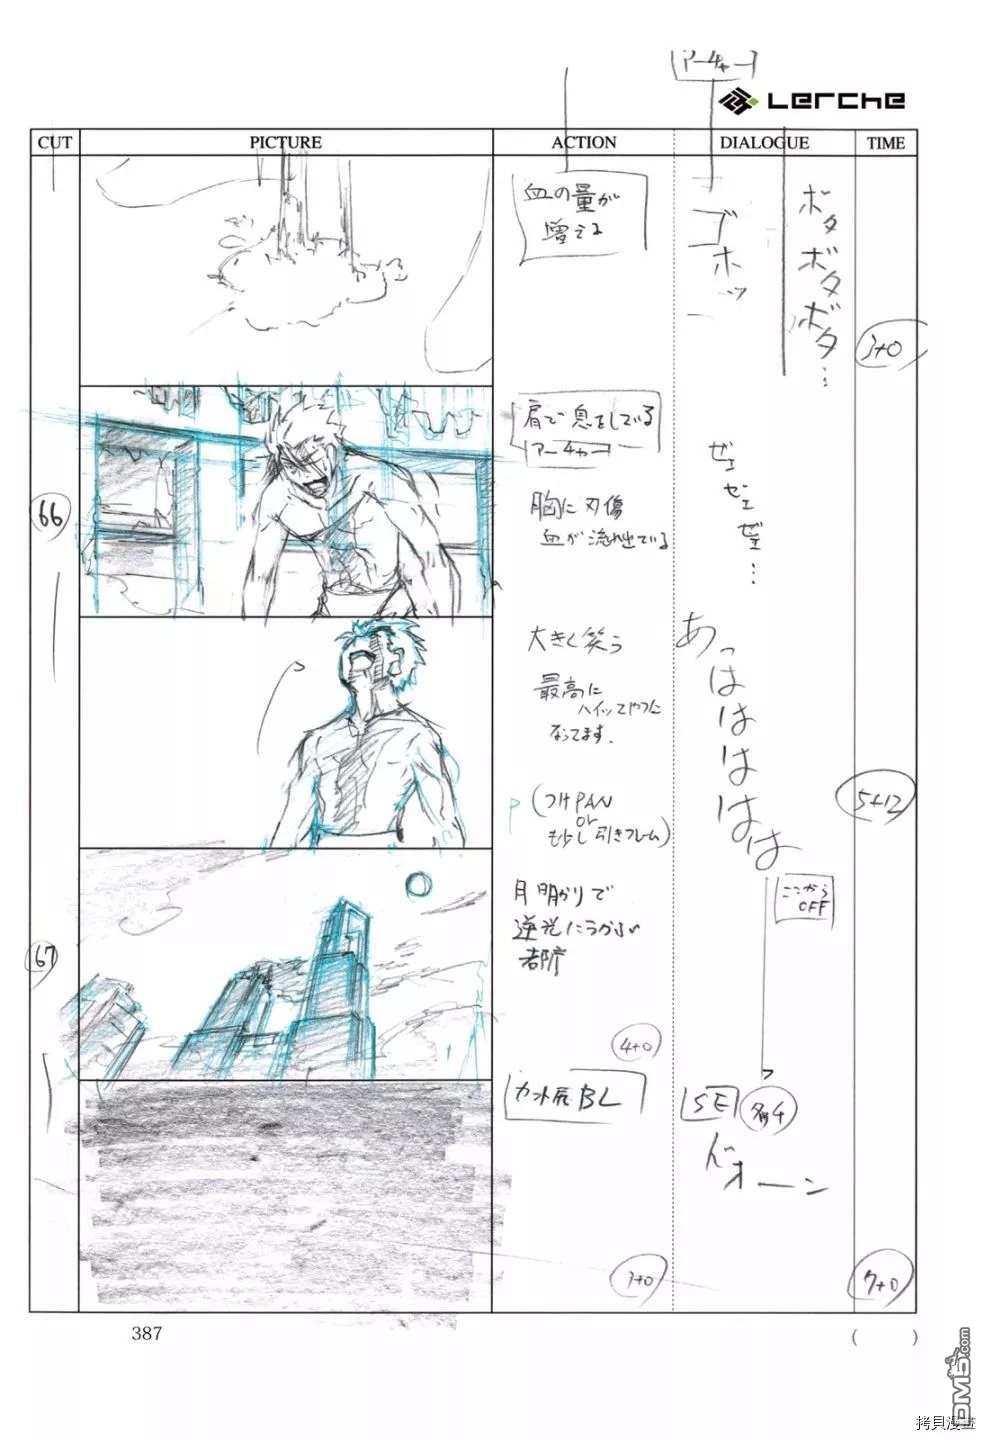 アーチャー
Lerche
CUT PICTURE ACTION DIALOGUE TIME
血の量が
増える
ゴホッ
ボタ
ボタ
ボタ…
3+0
66
肩で息をしている
アーチャー
胸に刃傷
血が流れ出ている
ゼェ
ゼェ
ゼェ…
大きく笑う
最高に
ハイッてやつに
なってます.
P
(つけPAN
or
もう少し引きフレーム)
あっははははは
5+12
67
月明かりで
逆光にうかぶ
都庁
ここから
OFF
4+0
カット尻 BL
SE
ドォーン
3+0
7+0
387
( )
DM5.com
拷貝漫畫